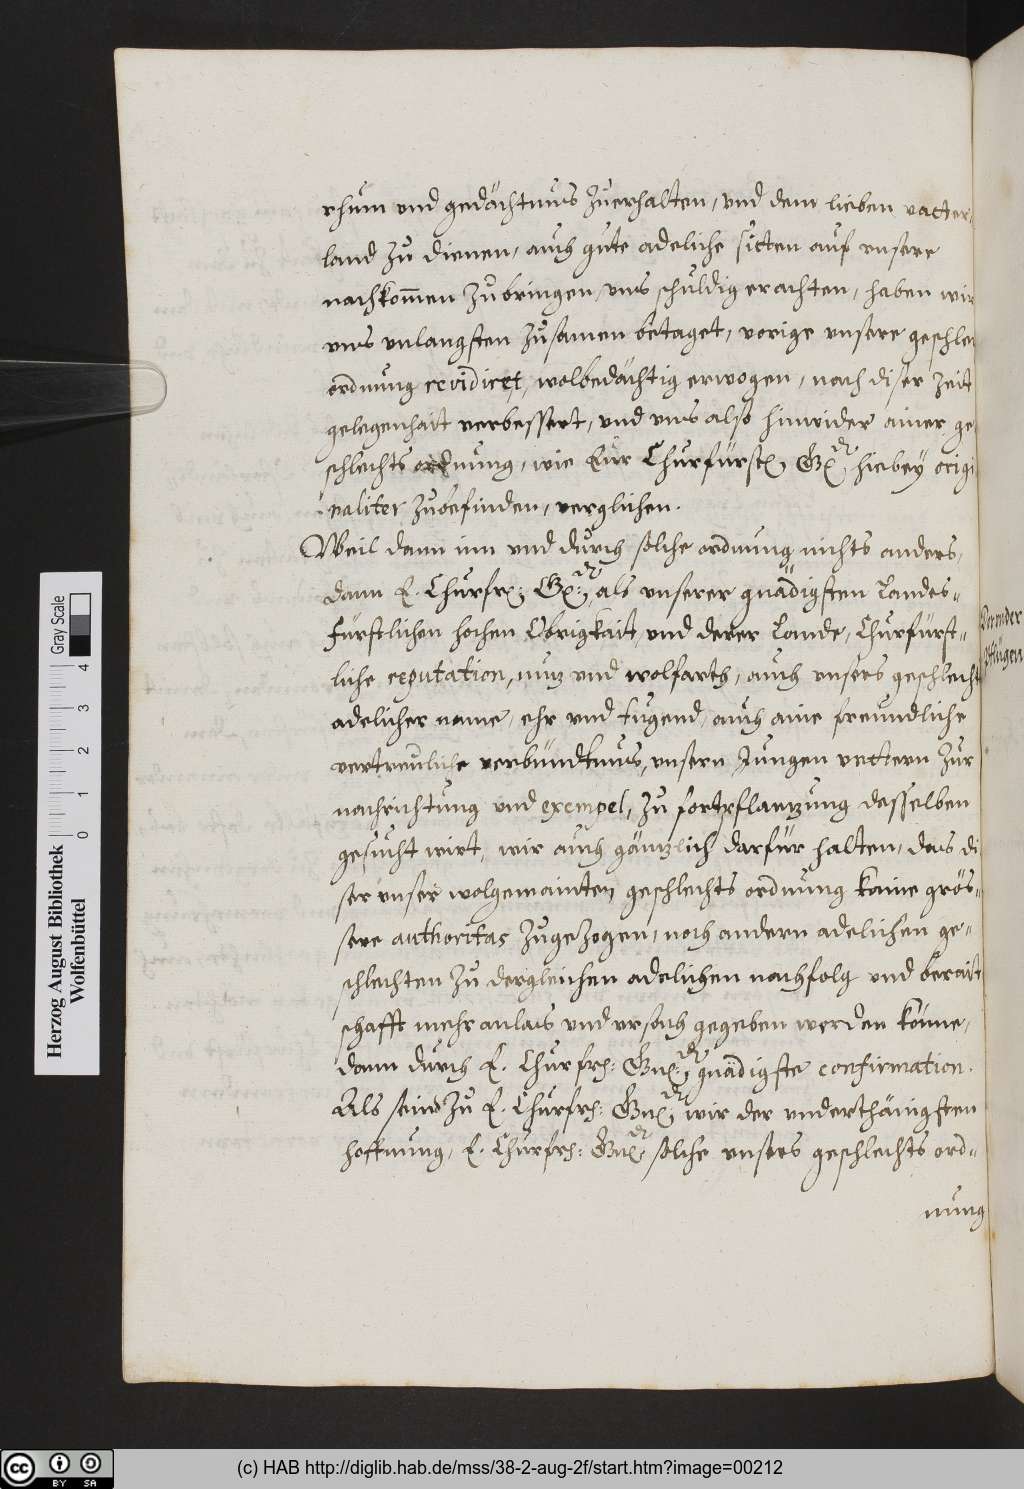 rhum und gedächtnus zuerhalten, und dem lieben vatter„
land zu dienen, auch gute adeliche sitten auf unsere
nachkomen zubringen, uns schuldig erachten, haben wir
uns unlangsten zusamen betaget, vorige unsere geschlec
ordnung revidiret, wolbedächtig erwogen, nach diser Zeit
gelegenhait verbessert, und uns also hinwider ainer ge
schlechts ordnung, wie Eur Churfürstl. Gl. hiebey origi
naliter zubefinden, verglichen.
Weil dann inn und durch solche ordnung nichts anders,
dann E. Churfrl: Gl: als unserer gnädigsten Landes„
Fürstlichen hohen Obrigkait, und derer Lande, Churfürst„
liche reputation, nuz und wolfarth, auch unsers geschlecht
adelicher name, ehr und tugend, auch aine freundliche
vertreuliche verbündtnus, unsern Jungen vettern zur
nachrichtung und exempel, zu fortpflantzung desselben
gesucht wirt, wir auch gäntzlich darfür halten, das di
ser unser wolgemainten geschlechts ordnung kaine grös„
sere authoritas zugezogen, noch andern adelichen ge„
schlechten zu dergleichen adelichen nachfolg und berait
schafft mehr anlas und ursach gegeben werden könne,
dann durch E. Churfrs: Gnl: gnädigste confirmation.
Als seind zu E. Churfrs: Gnl: wir der underthänigsten
hoffnung, E. Churfrs: Gnl: solche unsers geschlechts ord„
nung
Herzog August Bibliothek
Wolfenbüttel
0 1 2 3 4
Gray Scale
cc BY SA
(c) HAB http://diglib.hab.de/mss/38-2-aug-2f/start.htm?image=00212